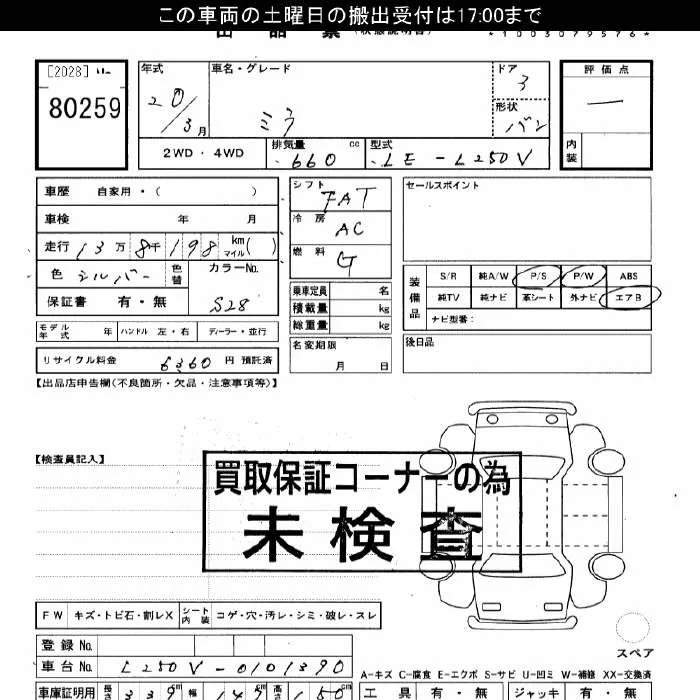 この車両の土曜日の搬出受付は17:00まで
*1003079576*
[2028]
80259
年式 車名・グレード ドア 評価点
20/3月 ミラ 3 ー
形状 バン
内装
2WD・4WD 排気量 660 cc 型式 LE-L250V
車歴 自家用・( )
シフト FAT
セールスポイント
車検 年 月
冷房 AC
走行 13万8千198 km(マイル)( )
燃料 G
色 シルバー 色替 カラーNo. S28
装備品 S/R 純A/W P/S P/W ABS
純TV 純ナビ 革シート 外ナビ エアB
ナビ型番:
保証書 有・無
乗車定員 名
積載量 kg
総重量 kg
モデル年式 年 ハンドル 左・右 ディーラー・並行
名変期限 月 日
後日品
リサイクル料金 6360 円 預託済
【出品店申告欄(不良箇所・欠品・注意事項等)】
【検査員記入】
買取保証コーナーの為
未検査
FW キズ・トビ石・割レX シート内装 コゲ・穴・汚レ・シミ・破レ・スレ
スペア
登録No.
車台No. L250V-0101390
A-キズ C-腐食 E-エクボ S-サビ U-凹ミ W-補修 XX-交換済
車庫証明用 長さ 339cm 幅 147cm 高さ 150cm
工具 有・無 ジャッキ 有・無